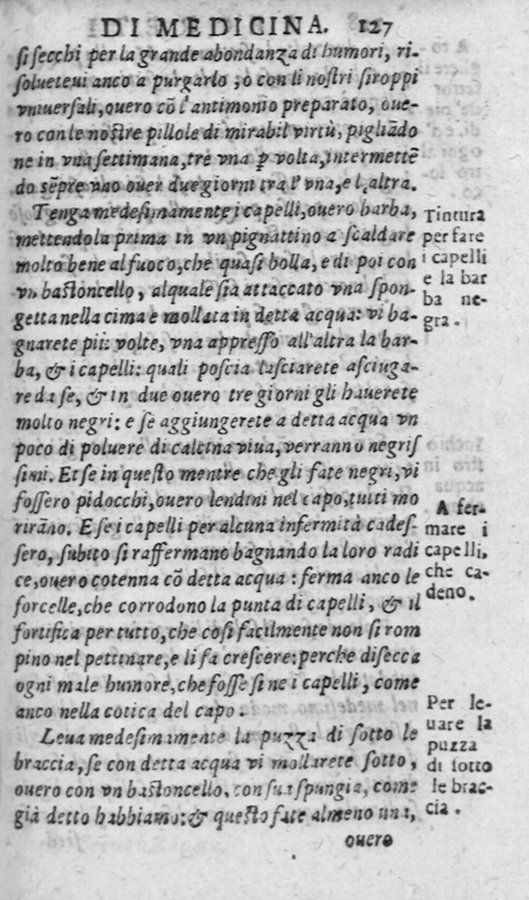 DI MEDICINA. 127
si secchi per la grande abondanza di humori, ri-
soluetevi anco a purgarlo, o con li nostri siroppi
vniuersali, ouero cõ l'antimonio preparato, oue-
ro con le nostre pillole di mirabil virtù, pigliãdo
ne in vna settimana, tre vna ꝑ volta, intermettẽ
do sẽpre vno ouer due giorni tra l'vna, e l,altra.
Tenga medesimamente i capelli, ouero barba,
mettendola prima in vn pignattino a scaldare
molto bene al fuoco, che quasi bolla, e di poi con
vn bastoncello, alquale sia attaccato vna spon-
getta nella cima e mollata in detta acqua: vi ba-
gnarete più volte, vna appresso all'altra la bar-
ba, & i capelli: quali poscia lasciarete asciuga-
re da se, & in due ouero tre giorni gli hauerete
molto negri: e se aggiungerete a detta acqua vn
poco di poluere di calcina viua, verranno negris
simi. Et se in questo mentre che gli fate negri, vi
fossero pidocchi, ouero lendini nel capo, tutti mo
rirãno. E se i capelli per alcuna infermità cades-
sero, subito si raffermano bagnando la loro radi
ce, ouero cotenna cõ detta acqua: ferma anco le
forcelle, che corrodono la punta di capelli, & il
fortifica per tutto, che cosi facilmente non si rom
pino nel pettinare, e li fa crescere: perche disecca
ogni male humore, che fosse si ne i capelli, come
anco nella cotica del capo.
Leua medesimamente la puzza di sotto le
braccia, se con detta acqua vi mollarete sotto,
ouero con vn bastoncello, con sua spungia, come
già detto habbiamo: & questo fate almeno una,
ouero
Tintura
per fare
i capelli
e la bar
ba ne-
gra.
A fer-
mare i
capelli,
che ca-
deno.
Per le-
uare la
puzza
di sotto
le brac-
cia.